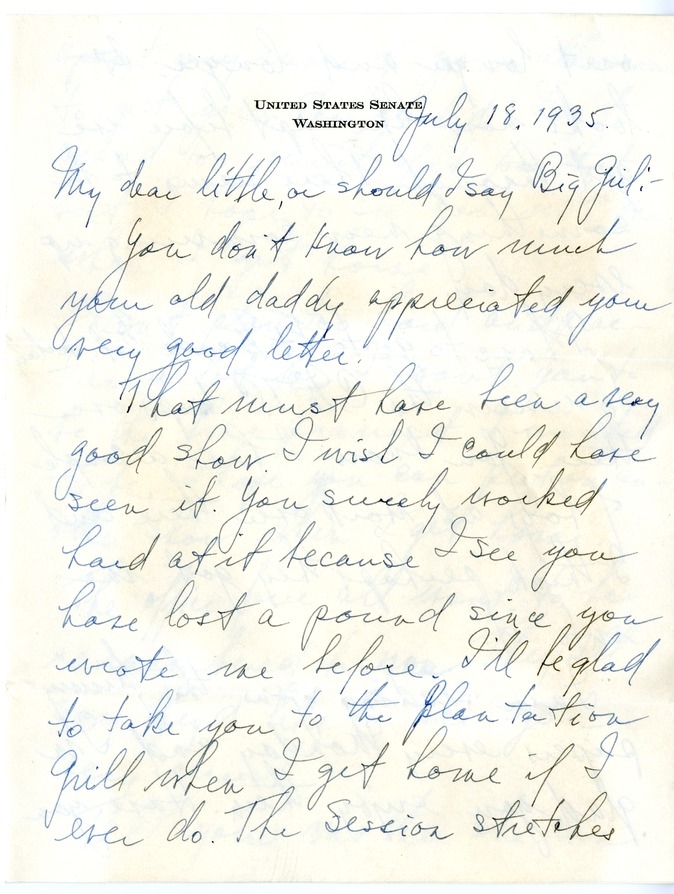 UNITED STATES SENATE
WASHINGTON
July 18, 1935.
My dear little, or should I say Big Girl:-
You don't know how much
your old daddy appreciated your
very good letter.
That must have been a very
good show. I wish I could have
seen it. You surely worked
hard at it because I see you
have lost a pound since you
wrote me before. I'll be glad
to take you to the Plantation
Grill when I get home if I
ever do. The Session stretches